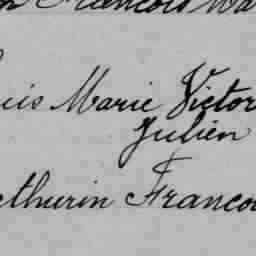 n François Ma
uis Marie Victor
Julien
thurin Franço